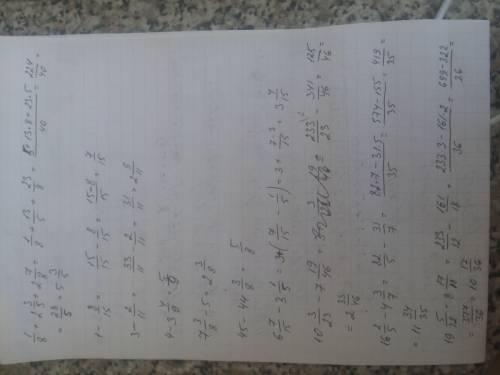 1/8 + 2 3/5 + 2 7/8 = 1/8 + 13/5 + 23/8 = (5+13·8+23·5)/40 = 224/40 =
= 28/5 = 5 3/5
1 - 8/15 = 15/15 - 8/15 = (15-8)/15 = 7/15
3 - 2/11 = 33/11 - 2/11 = 31/11 = 2 9/11
4 - 3 4/9 = 5/9
7 3/8 - 5 = 2 3/8
45 - 44 3/8 = 5/8
6 7/15 - 3 1/5 = 3+(7/15 - 1/5) = 3 + (7-3)/15 = 3 4/15
10 3/23 - 7 19/46 = 233/23 - 341/46 = 125/46 =
= 2 33/46
16 2/5 - 4 3/7 = 82/5 - 31/7 = (82·7-31·5)/35 = (574-155)/35 = 419/35 =
= 11 34/35
19 5/12 - 8 17/18 = 233/12 - 161/18 = (233·3-161·2)/36 = (699-322)/36 =
= 377/36 = 10 17/36